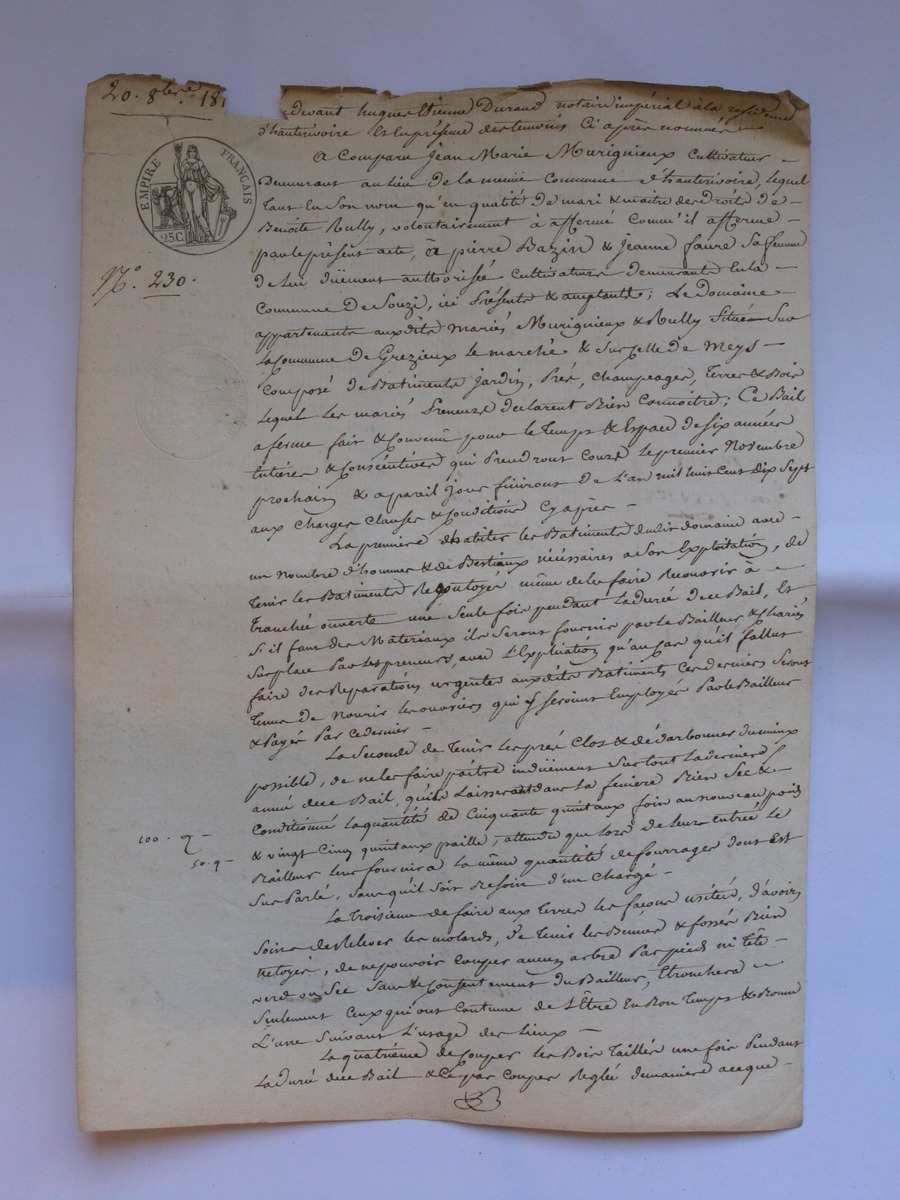 20. 8bre. 18
devant hugues Etienne Durand notaire impérial à la résidence
d'hauterivoire Et en présence des temoins Ci après nommés
EMPIRE FRANÇAIS
25C
A Comparu Jean Marie Murigneux Cultivateur
Demeurant au lieu de la meme Commune d'hauterivoire, lequel
tant En Son nom qu'en qualité de mari & maitre des droits de
Benoite Rully, volontairement à affermé Comm'il afferme
par le présent acte, à pierre Bazin & Jeanne faure Sa femme
de lui düement authorisée Cultivateurs demeurants En la
N° 230.
Commune De Souzi, ici Présents & aceptants; Le Domaine
appartenants auxdits mariés Murigneux & Rully Situé Sur
la Commune de Grezieux le marché & Sur Celle de Meys
Composé de Batiments Jardin, Prés, Champeages, Terres & Bois
lequel Les mariés Preneurs déclarent Bien Connoitre; Ce Bail
a ferme fait & Convenu pour le Temps & Espace de Six années
Entières & Consécutives qui Prendront Cours Le premier Novembre
prochain & a pareil jour finiront de L'an mil huit Cent dix Sept
aux Charges Clauses & Conditions Cy après
La première d'habiter les Batiments dudit domaine avec
un Nombre d'hommes & de Bestiaux nécessaires a Son Exploitation, de
Tenir les Batiments même de les faire Recouvrir à
Tranché ouverte une Seule fois pendant la durée dece Bail, Et
S'il faut des Matériaux ils Seront fournis par le Bailleur & Chariés
Sur place Par les preneurs, avec L'Expliation qu'au Cas qu'il fallut
faire des Reparations urgentes auxdits Batiments Ces derniers Seront
Tenus de Nourir les ouvriers qui y Seroient Employés Par le Bailleur
& Payés Par Ce dernier
La Seconde de Tenir les prés Clos & de du mieux
possible, de ne les faire paitre indüement Surtout la derniere
année dece Bail, qu'ils Laisseront dans la feniere Bien Sec &
Conditionné la quantité de Cinquante quintaux foin au nouveau poids
100. q
& vingt Cinq quintaux paille, attendu que lors de leur Entrée le
50. q
Bailleur leur fournira la même quantité de fourrages dont Est
Sus Parlé, Sans qu'il Soit Besoin d'un Chargé
La Troisieme de faire aux Terres les façons usitées, d'avoir
Soins de Relever les molards, de Tenir les & fossés Bien
netoyés, de ne pouvoir Couper aucun arbre Par pied ni Tête
verd ou Sec Sans le Consentement du Bailleur,
Seulement Ceux qui ont Coutume de L'Être En Bon Temps & Bonne
L'une Suivant L'usage des lieux
La quatrième de Couper les Bois Taillis une fois Pendant
la durée dece Bail & Ce par Coupes Reglées de maniere aceque